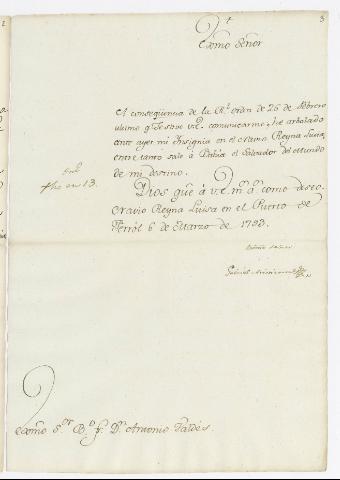 3
Exmo Señor
A conseqüencia de la Rl orden de 26 de febrero
ultimo q. se sirve V.E. comunicarme, he arbolado
ante ayer mi Insignia en el Navio Reyna Luisa,
entretanto sale á Bahia el Salvador del Mundo
de mi destino.
fho en 13.
Dios gue á V.E. ms as como deseo.
Navio Reyna Luisa en el Puerto de
Ferrol 6 de Marzo de 1793.
Exmo Sor Bo fr. Dn Antonio Valdés.